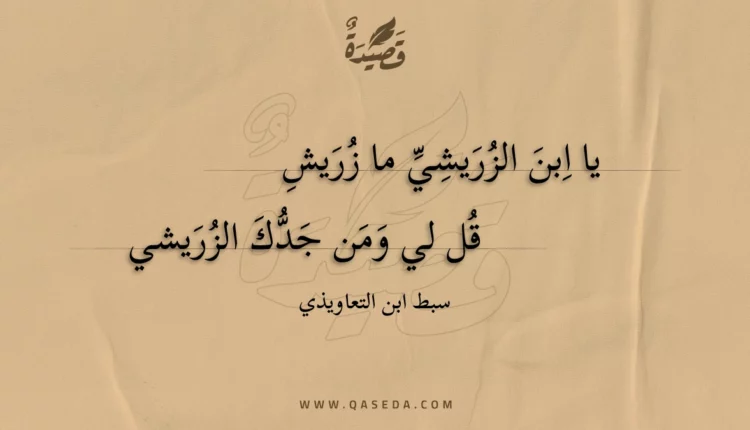 قَصِيْدَةٌ
يا اِبنَ الزُرَيشِيِّ ما زُرَيشِ
قُل لي وَمَن جَدُّكَ الزُرَيشي
سبط ابن التعاويذي
WWW.QASEDA.COM